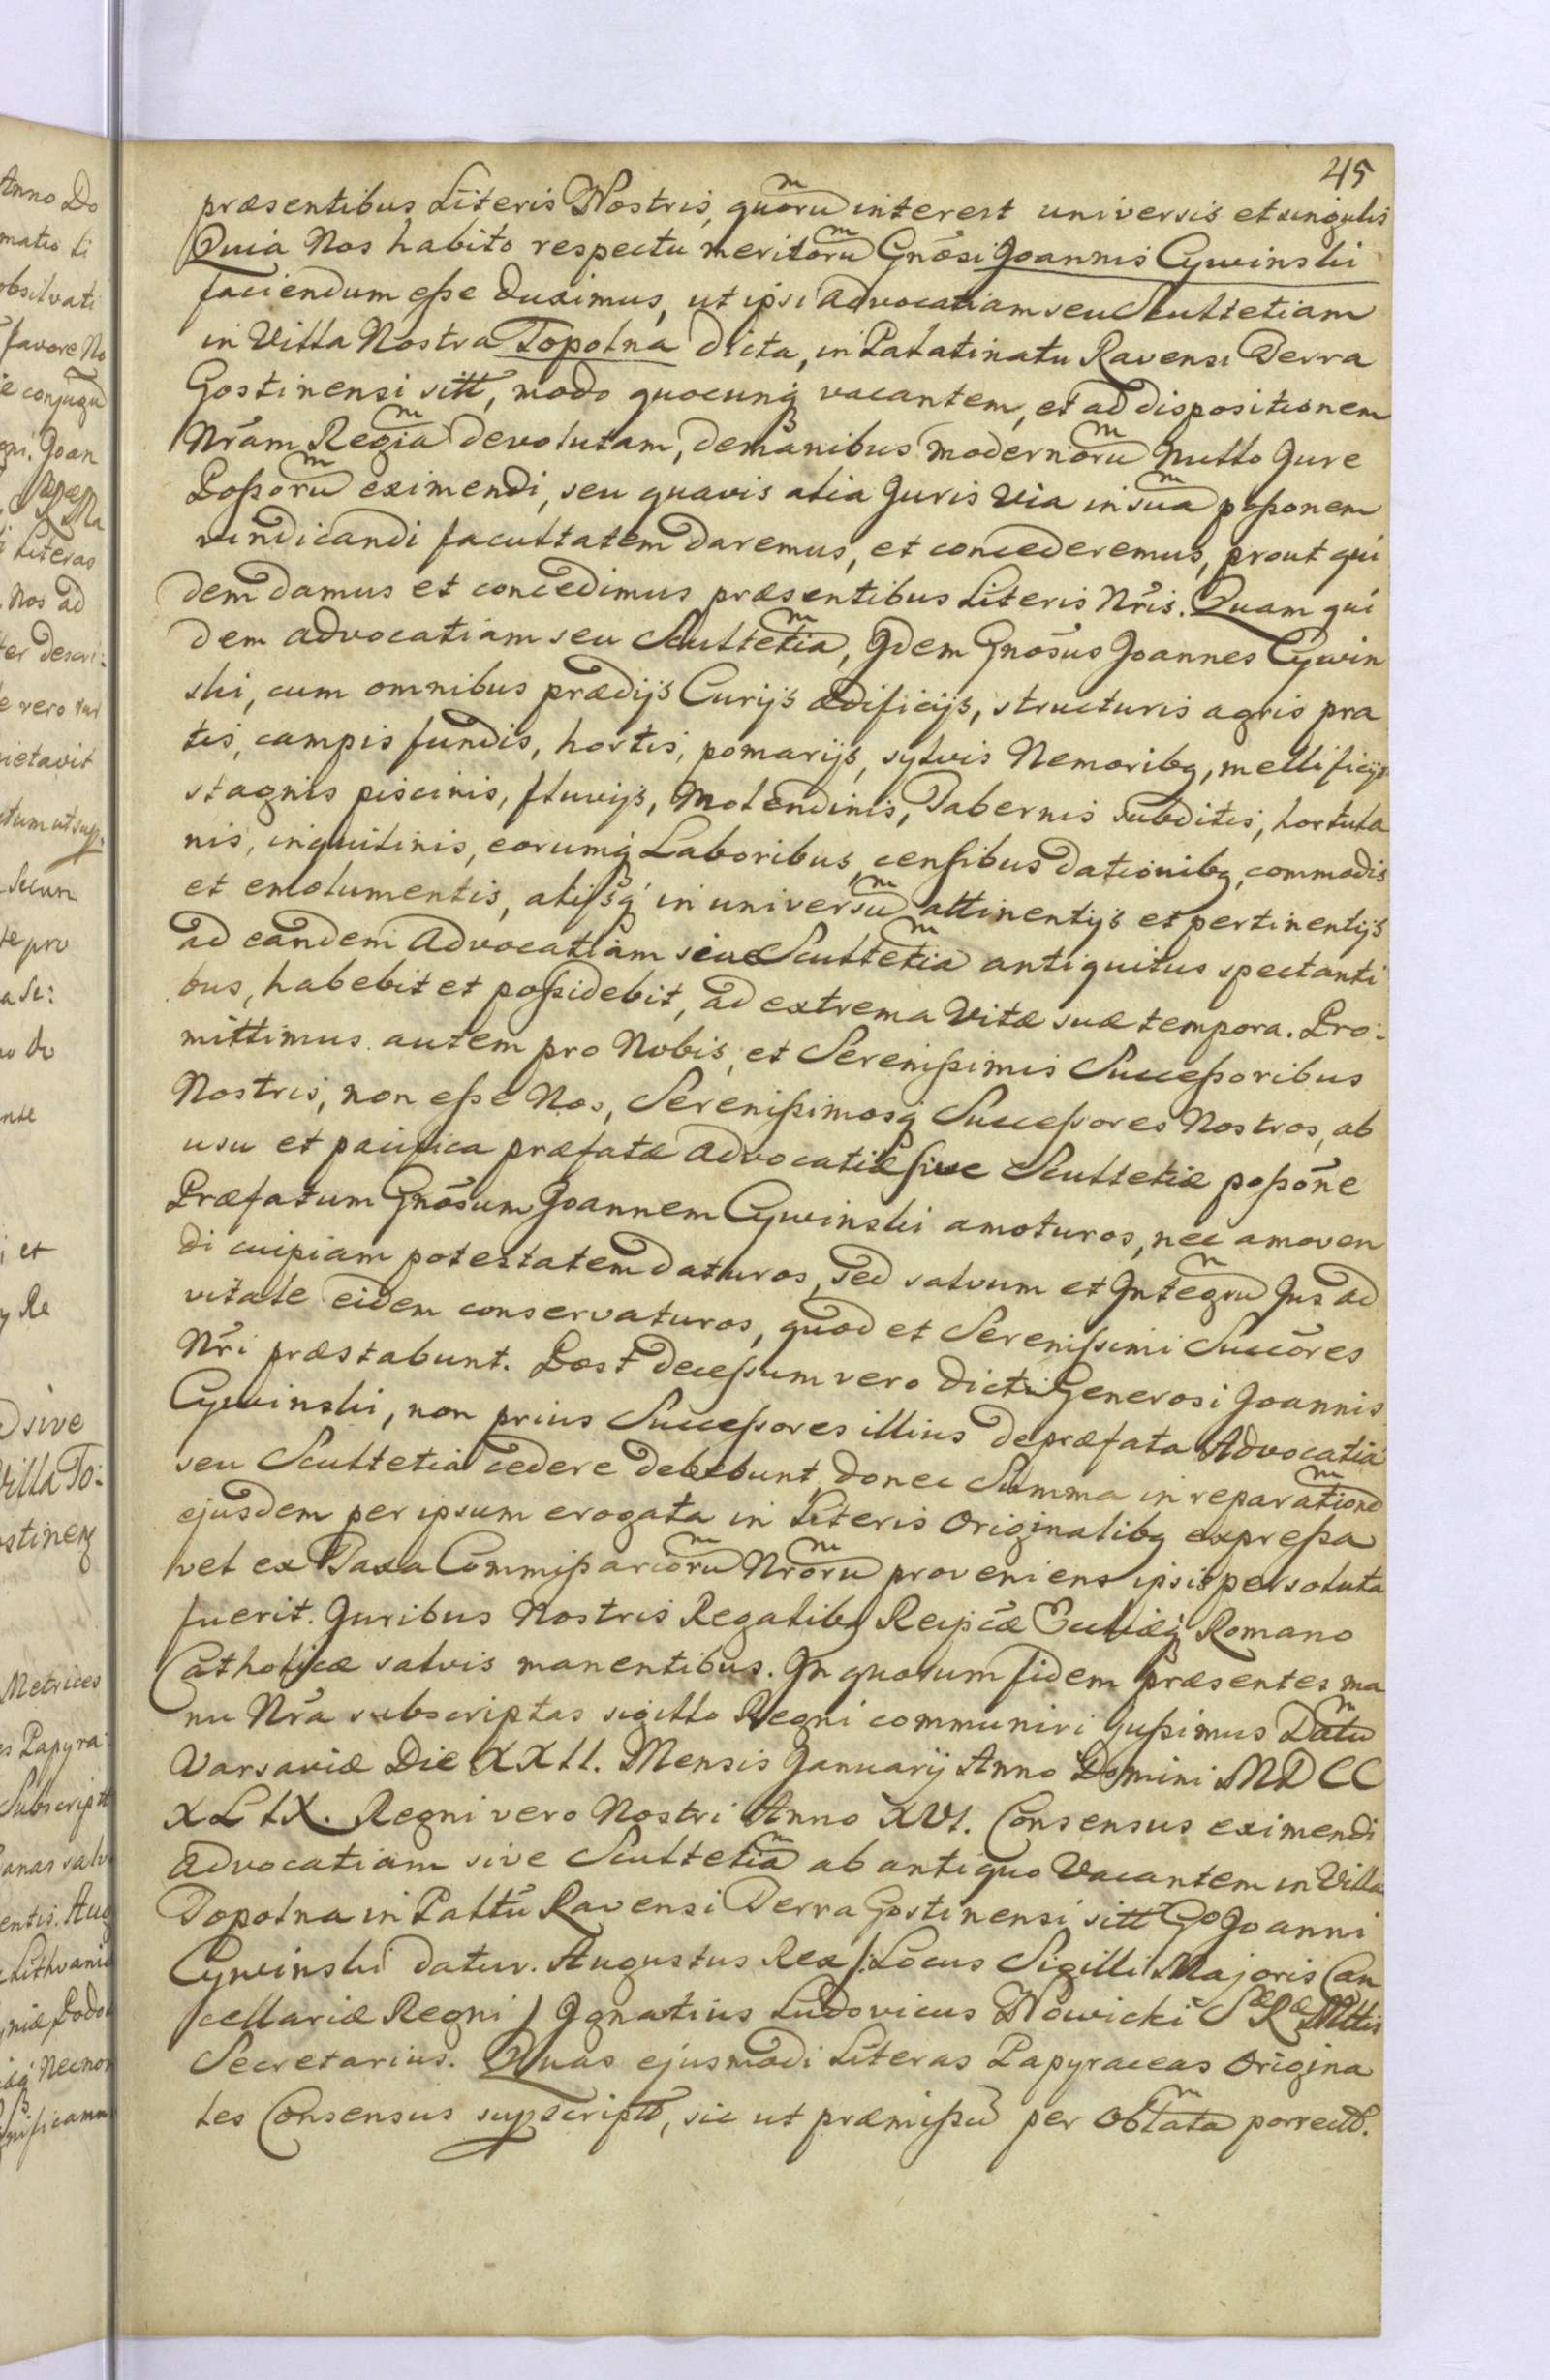 45
præsentibus Literis Nostris, quorũ interest universis et singulis
Quia Nos habito respectu meritorũ Gnosi Joannis Cywinski
faciendum esse duximus, ut ipsi advocatiam seu Scultetiam
in Villa Nostra Topolna dicta, in Palatinatu Ravensi Terra
Gostinensi sitt, modo quocunq vacantem, et ad dispositionem
Nram Regiã devolutam, de manibus modernorũ Nullo Jure
Possorũ eximendi, seu quavis alia Juris via in suã possonem
vindicandi facultatem daremus, et concederemus, prout qui
dem damus et concedimus præsentibus Literis Nris. Quam qui
dem advocatiam seu Scultetiã, Jdem Gnosus Joannes Cywin
ski, cum omnibus prædijs Curijs ædificijs, structuris agris pra
tis, campis fundis, hortis, pomarijs, sylvis Nemoribq, mellificijs
stagnis piscinis, fluvijs, Molendinis, Tabernis subditis, hortula
nis, inquilinis, eorumq Laboribus, censibus dationibq, commodis
et emolumentis, alijsq in universũ attinentijs et pertinentijs
ad eandem Advocatiam sive Scultetiã antiquitus spectanti
bus, habebit et possidebit, ad extrema Vitæ suæ tempora. Pro:
mittimus autem pro Nobis, et Serenissimis Successoribus
Nostris, non esse Nos, Serenissimosq Successores Nostros, ab
usu et pacifica præfatæ advocatiæ sive Scultetiæ possone
Præfatum Gnosum Joannem Cywinski amoturos, nec amoven
di cuipiam potestatem daturos, sed salvum et Jntegrũ Jus ad
vitale eidem conservaturos, quod et Serenissimi Succores
Nri præstabunt. Post decessum vero dicti Generosi Joannis
Cywinski, non prius Successores illius de præfata Advocatia
seu Scultetia cedere debebunt, donec Summa in reparationẽ
ejusdem per ipsum erogata in Literis originalibq expressa
vel ex Taxa Commissariorũ Nrorũ proveniens ipsis persoluta
fuerit. Juribus Nostris Regalibq Reipcæ Eccliæq Romano
Catholicæ salvis manentibus. Jn quorum fidem præsentes ma
nu Nra subscriptas sigillo Regni communiri jussimus Datũ
Varsaviæ Die XXII. Mensis Januarij Anno Domini MDCC
XLIX. Regni vero Nostri Anno XVI. Consensus eximendi
advocatiam sive Scultetiã ab antiquo Vacantem in Villa
Topolna in Pallttu Ravensi Terra Gostinensi sitt Go Joanni
Cywinski datur. Augustus Rex /: Locus Sigilli Majoris Can
cellariæ Regni / Jgnatius Ludovicus Nowicki S R Mttis
Secretarius. Quas ejusmodi Literas Papyraceas origina
les Consensus supscriptt, sic ut præmissũ per oblatã porrectt.